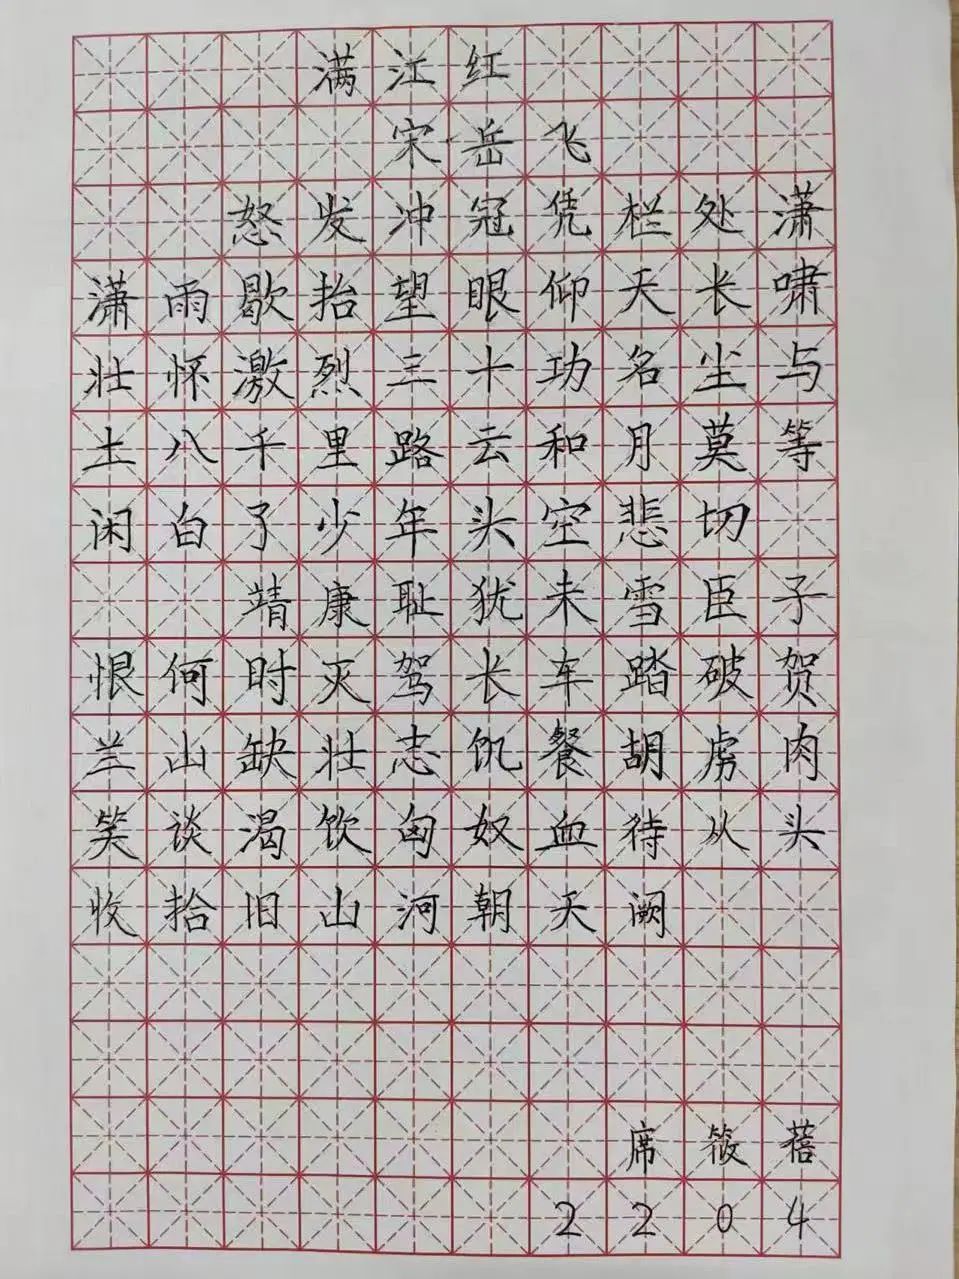 满江红
宋·岳飞
怒发冲冠凭栏处潇
潇雨歇抬望眼仰天长啸
壮怀激烈三十功名尘与
土八千里路云和月莫等
闲白了少年头空悲切
靖康耻犹未雪臣子
恨何时灭驾长车踏破贺
兰山缺壮志饥餐胡虏肉
笑谈渴饮匈奴血待从头
收拾旧山河朝天阙
席筱蓓
2204